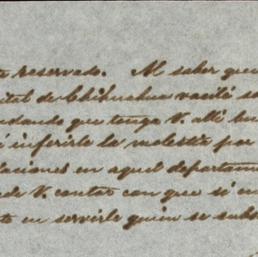 reservado. Al saber que
de Chihuahua vacilé
que tengo V. allí
inferirle la molestia por
en aquel departam
V. contar con que si
en servirle quien se subs